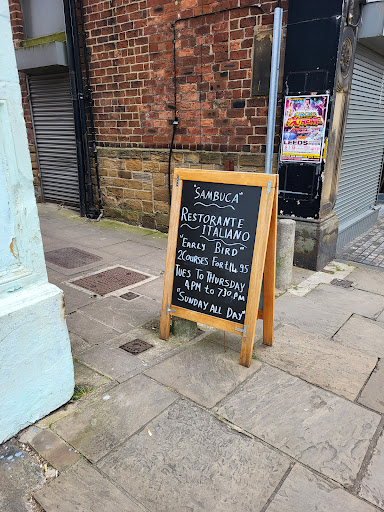 "SAMBUCA"
RISTORANTE
ITALIANO
"EARLY BIRD"
2 COURSES FOR £14.95
TUES TO THURSDAY
4PM TO 7.30 PM
"SUNDAY ALL DAY"
LEEDS